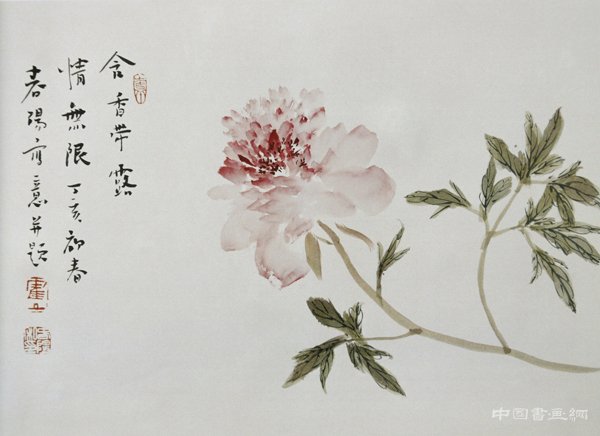 含香帶露
情無限 丁亥初春
春陽寫意并題
中国書畫網